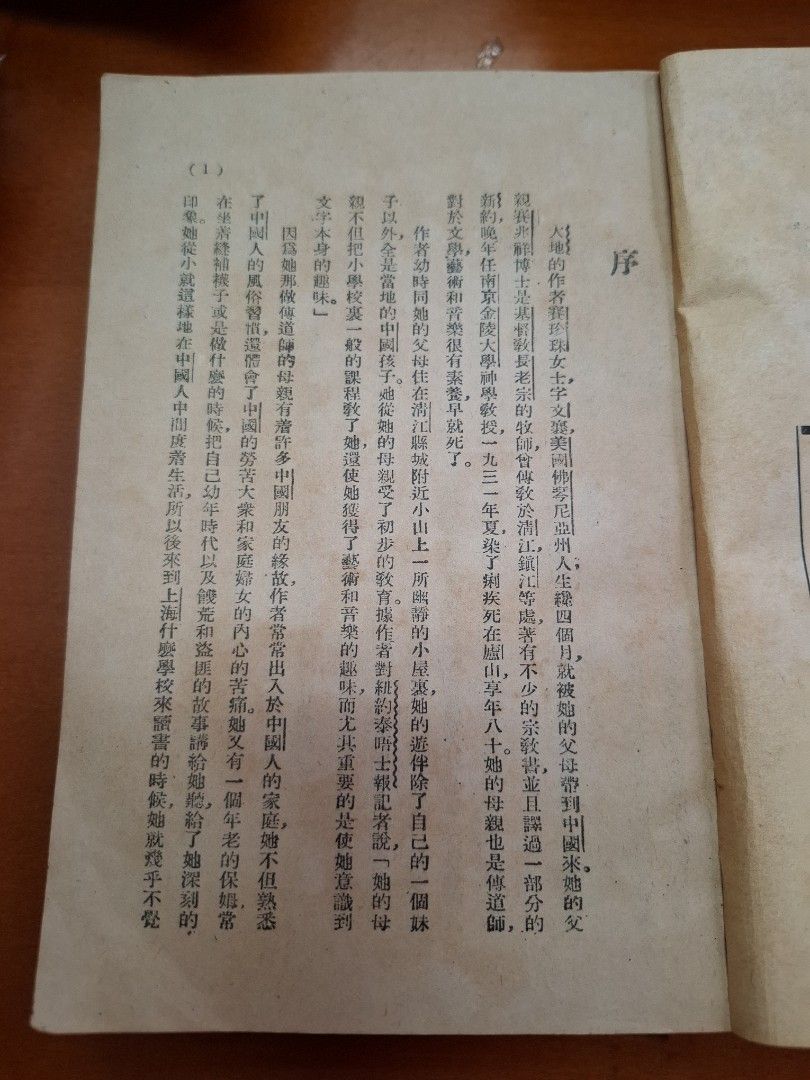 序
大地的作者賽珍珠女士，字文襄，美國佛琴尼亞州人，生纔四個月，就被她的父母帶到中國來。她的父
親賽兆祥博士是基督教長老宗的牧師，曾傳教於淸江，鎭江等處，著有不少的宗教書，並且譯過一部分的
新約，晚年任南京金陵大學神學教授，一九三一年夏，染了痢疾死在廬山，享年八十。她的母親也是傳道師，
對於文學，藝術和音樂很有素養，早就死了。
作者幼時同她的父母住在淸江縣城附近小山上一所幽靜的小屋裏，她的遊伴除了自己的一個妹
子以外，全是當地的中國孩子。她從她的母親受了初步的教育。據作者對紐約泰晤士報記者說，「她的母
親不但把小學校裏一般的課程教了她，還使她獲得了藝術和音樂的趣味，而尤其重要的是使她意識到
文字本身的趣味。」
因爲她那做傳道師的母親有着許多中國朋友的緣故，作者常常出入於中國人的家庭，她不但熟悉
了中國人的風俗習慣，還體會了中國的勞苦大衆和家庭婦女的內心的苦痛。她又有一個年老的保姆常
在坐着縫補襪子或是做什麼的時候，把自己幼年時代以及饑荒和盜匪的故事講給她聽，給了她深刻的
印象。她從小就這樣地在中國人中間度着生活，所以後來到上海什麼學校來讀書的時候，她就幾乎不覺
(1)